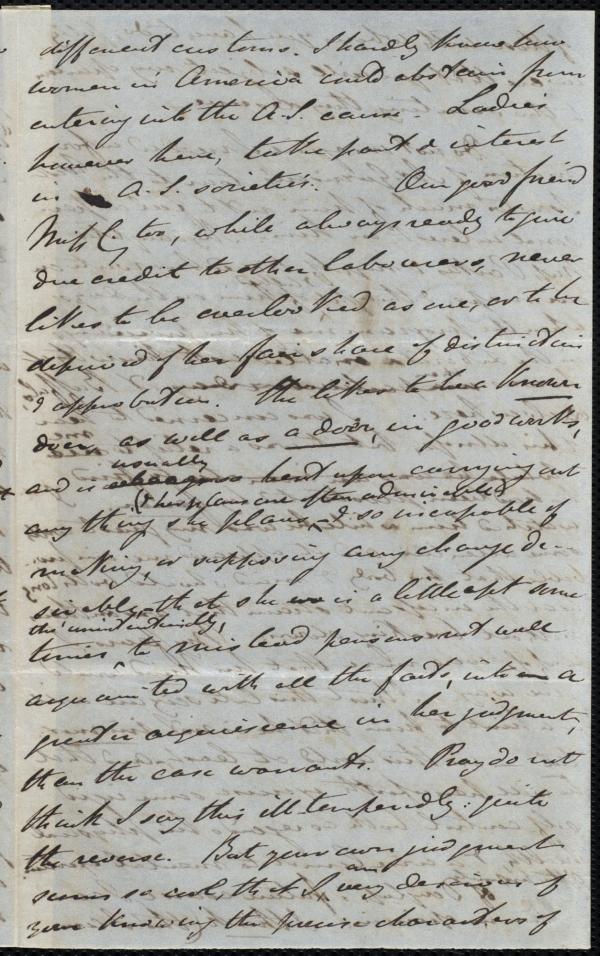 different customs. I hardly know how
women in America could abstain from
entering into the A.S. cause. Ladies
however here, take part & interest
in A.S. societies. Our good friend
Miss C, too, while always ready to give
due credit to other labourers, never
likes to be overlooked as one, or to be
deprived of her fair share of distinction
& approbation. She likes to be a known
doer, as well as a doer, in good works,
usually
and is always bent upon carrying out
(& her plans are often admirable)
any thing she plans, & so incapable of
making, or supposing any change de-
sirable, that she is a little apt some
tho' unintentionally,
times to mislead persons not well
acquainted with all the facts, into a
greater acquiescence in her judgment,
than the case warrants. Pray do not
think I say this ill-temperedly: quite
the reverse. But your own judgment
am
seems so cool, that I very desirous of
your knowing the precise characters of